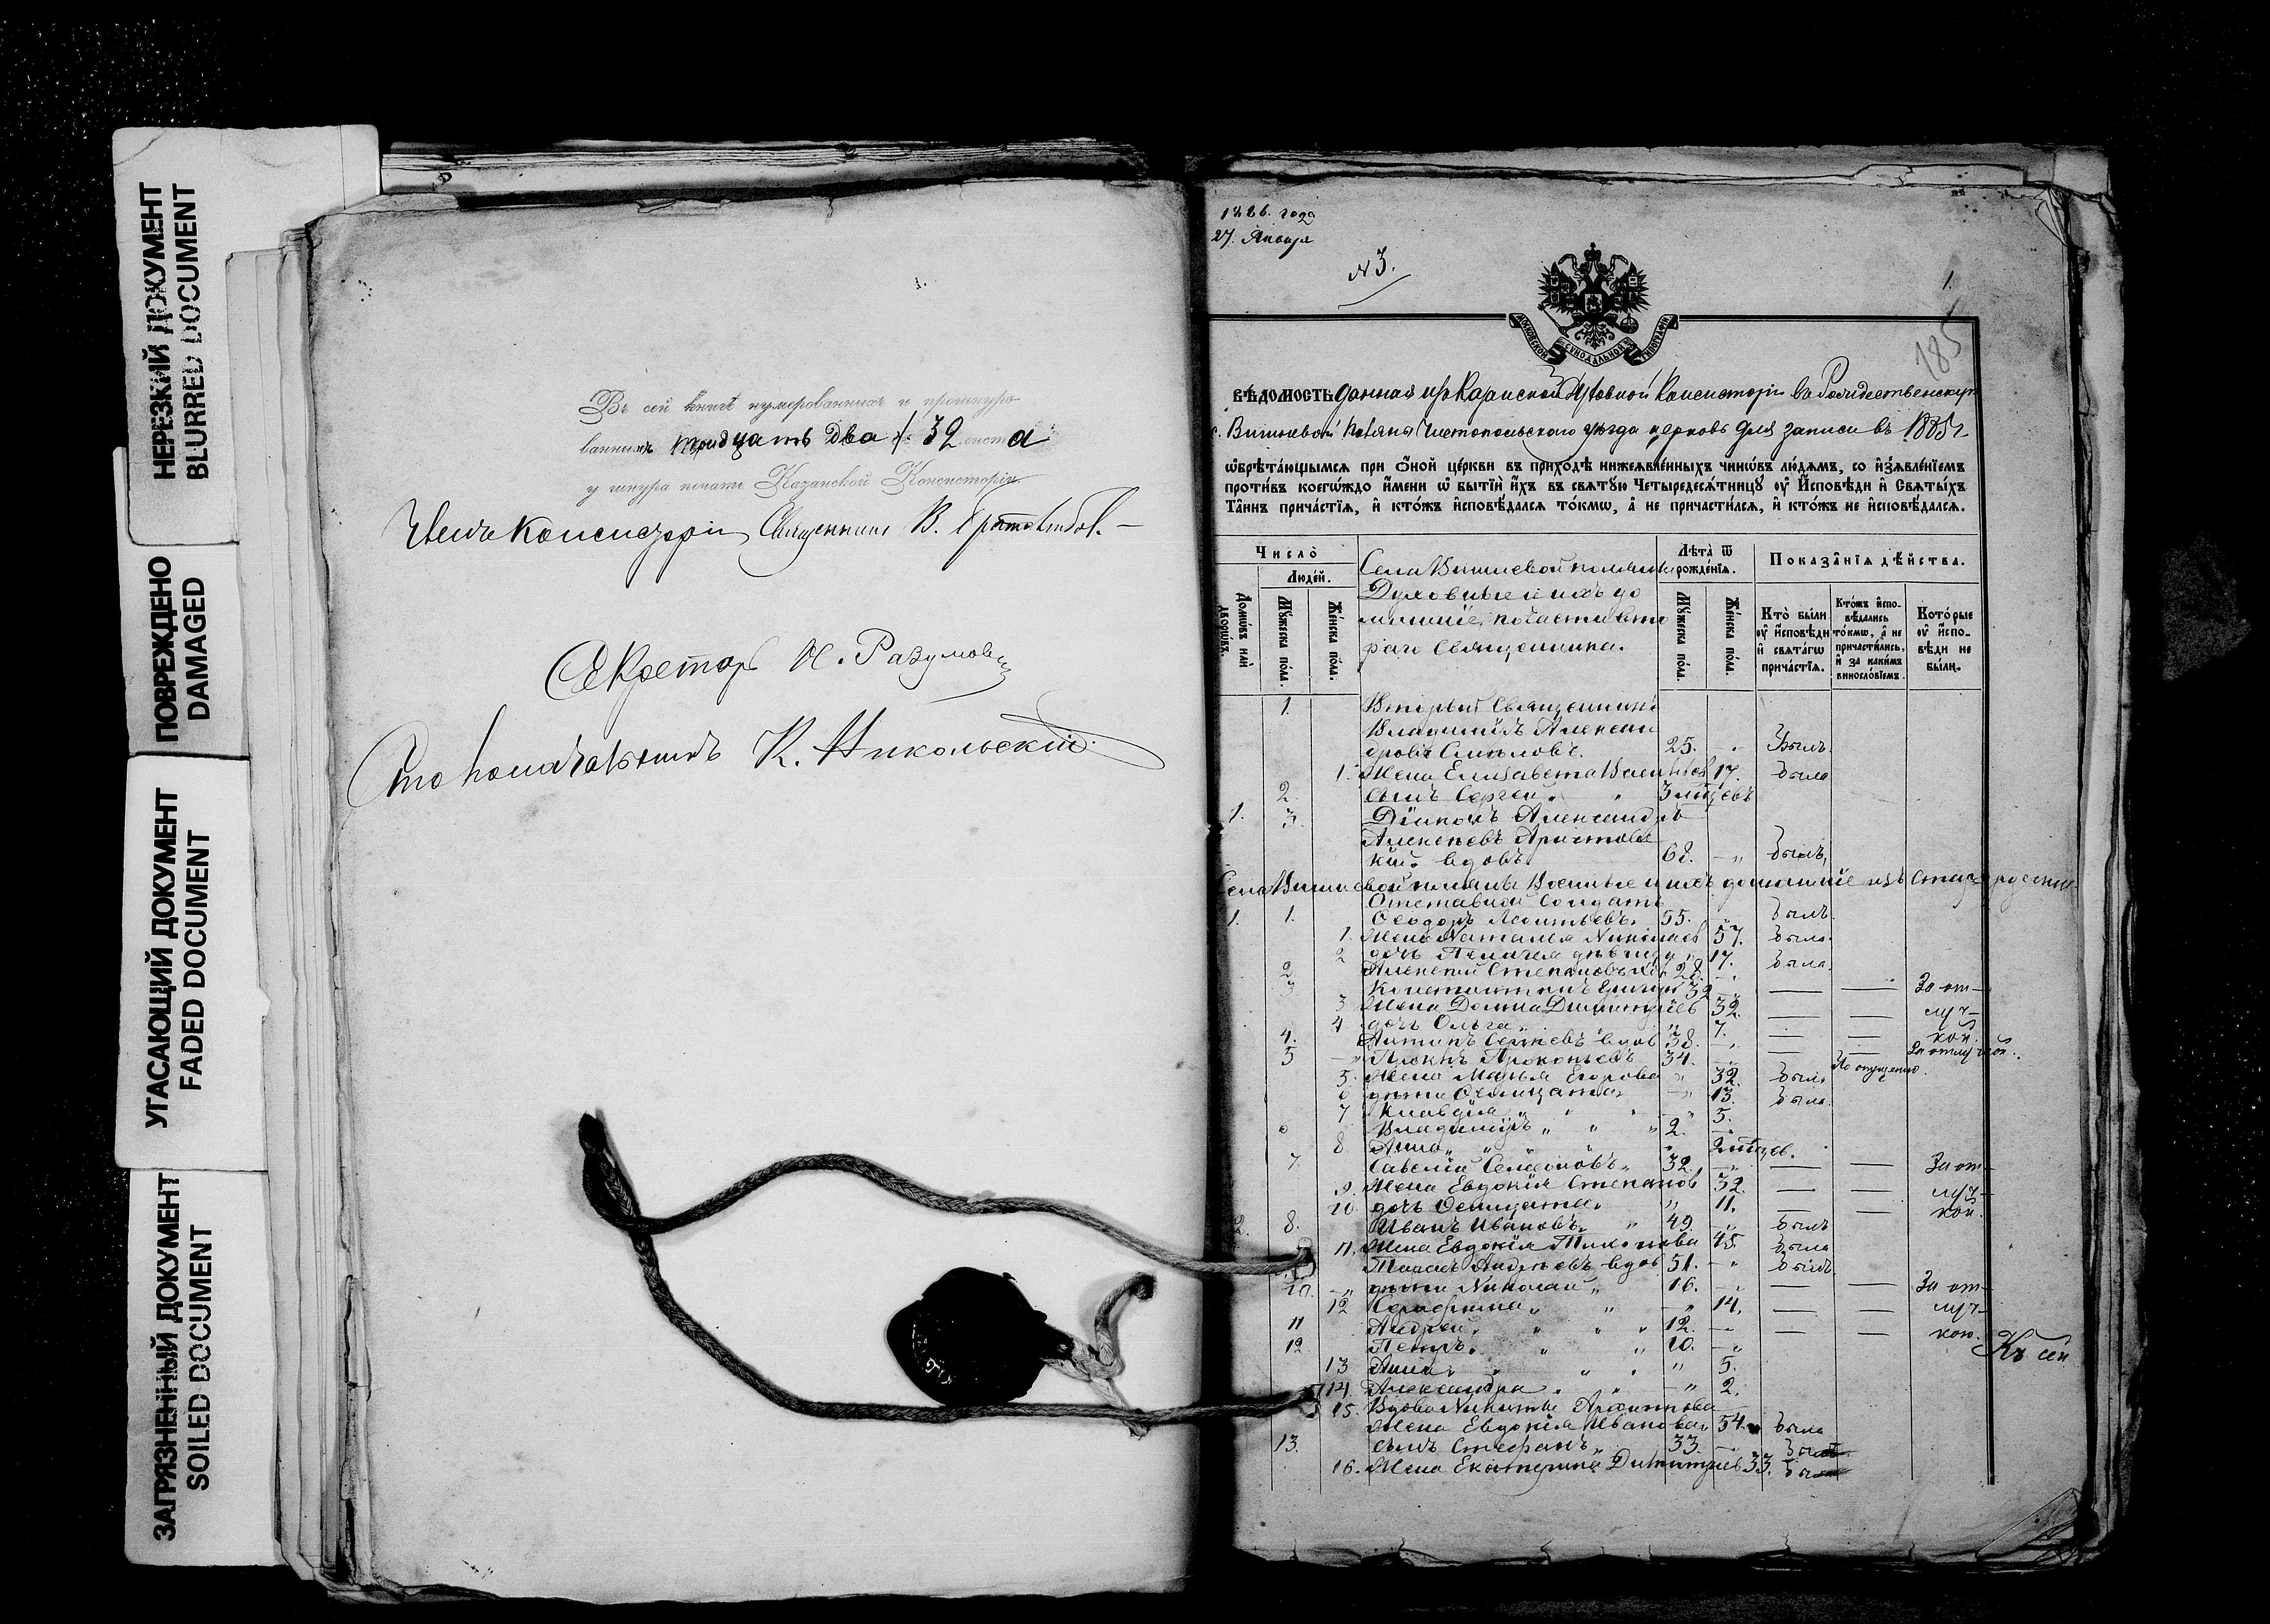 НЕРЕЗКИЙ ДОКУМЕНТ
BLURRED DOCUMENT
ПОВРЕЖДЕНО
DAMAGED
УГАСАЮЩИЙ ДОКУМЕНТ
FADED DOCUMENT
ЗАГРЯЗНЕННЫЙ ДОКУМЕНТ
SOILED DOCUMENT
Въ сей книгѣ нумерованныхъ и прошнуро-
ванныхъ тридцать два /: 32 листа
у шнура печать Казанской Консисторіи
Членъ Консисторіи Священникъ В.
Секретарь И. Разумовъ
Столоначальникъ К. Никольскій
1886. года
27. Января
N 3.
1.
185
МОСКОВСКОЙ СѴНОДАЛЬНОЙ ТИПОГРАФІИ
ВѢДОМОСТЬ данная изъ Казанской Духовной Консисторіи въ Рождественскую
с. Вишневой Поляны Чистопольскаго уѣзда церковь для записи въ 1885 г.
ѡбрѣтающымся при оной церкви въ приходѣ нижеявленныхъ чинѡвъ людямъ, со изъявленіемъ
противъ коегѡждо имени ѿ бытіи ихъ въ святую Четыредесятницу ѹ Исповѣди и Святыхъ
Таинъ причастія, и ктожъ исповѣдался токмѡ, а не причастился, и ктожъ не исповѣдался.
Число
Людей.
Домѡвъ или дворѡвъ.
Мужеска пола.
Женска пола.
Села Вишневой поляны
Духовные и ихъ до
машніе, по части вто
раго Священника.
Лѣта ѿ рожденія.
Мужеска пола.
Женска пола.
Показанія дѣйства.
Кто были ѹ исповѣди и святагѡ причастія.
Ктожъ исповѣдались токмѡ, а не причастились, и за какимъ винословіемъ.
Которые ѹ исповѣди не были.
1. Вторый Священникъ
Владиміръ Алексан
дровъ Смѣловъ. 25. " Былъ.
1. Жена Елизавета 17. была
2. сынъ Сергѣй. " 3 мѣсяцевъ
1. 3. Діаконъ Александръ
Алексѣевъ Аристов
кій. вдовъ. 68. " былъ,
Села Вишневой поляны Военные и ихъ домашніе изъ
Отставной Солдатъ
1. 1. Ѳеодоръ Леонтьевъ. 55. " былъ.
1. Жена Наталья Николаев 57. была.
2 дочь Пелагея дѣвица " 17. была.
2 Алексѣй Степановъ 28. "
3 Константинъ 32 — — За от-
3 Жена Домна Димитріев 32. — — луч-
4 дочь Ольга " 7. — — кой.
4. Антипъ Сергѣевъ вдов 38. " — — За отлучкой.
5 Прокопьевъ 34. " По опущенію.
5. Жена Марья Егорова " 32. была
6 дѣти " 13. была.
7 Клавдія " " 5.
Владиміръ " " 2. "
8 Анна " " 2 мѣсяцев.
7. Савелій Семеновъ " 32. " — — За от-
9. Жена Евдокія Степанов 32. — — луч-
10 дочь " 11. — — кой.
2. 8. Иванъ Ивановъ. " 49. " былъ
11. Жена Евдокія Тихонова 45. была
Андреевъ вдов 51. " былъ
10. дѣти Николай " 16. " — — За от-
12 Серафима " " 14. — — луч-
11 Андрей. " " " 12. — — — кою.
12. Петръ. " " 10. "
13 Анна. " " " 5.
14. Александра. " " 2.
15. Вдова Никиты
Жена Евдокія Иванова 54. была
13. сынъ Стефанъ " 33.
16. Жена Екатерина Димитріев 33.
Къ сей